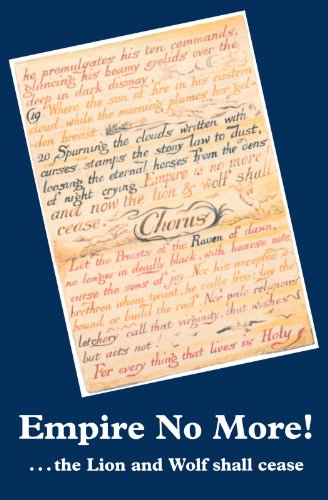 he promulgates his ten commands,
glancing his beamy eyelids over the
deep in dark dismay,
19 Where the son of fire in his eastern
cloud, while the morning plumes her gol-
den breast,
20 Spurning the clouds written with
curses, stamps the stony law to dust,
loosing the eternal horses from the dens
of night, crying Empire is no more!
and now the lion & wolf shall
cease.
Chorus
Let the Priests of the Raven of dawn,
no longer in deadly black, with hoarse note
curse the sons of joy. Nor his accepted
brethren whom, tyrant, he calls free: lay the
bound or build the roof. Nor pale religious
letchery call that virginity, that wishes
but acts not!
For every thing that lives is Holy
Empire No More!
...the Lion and Wolf shall cease